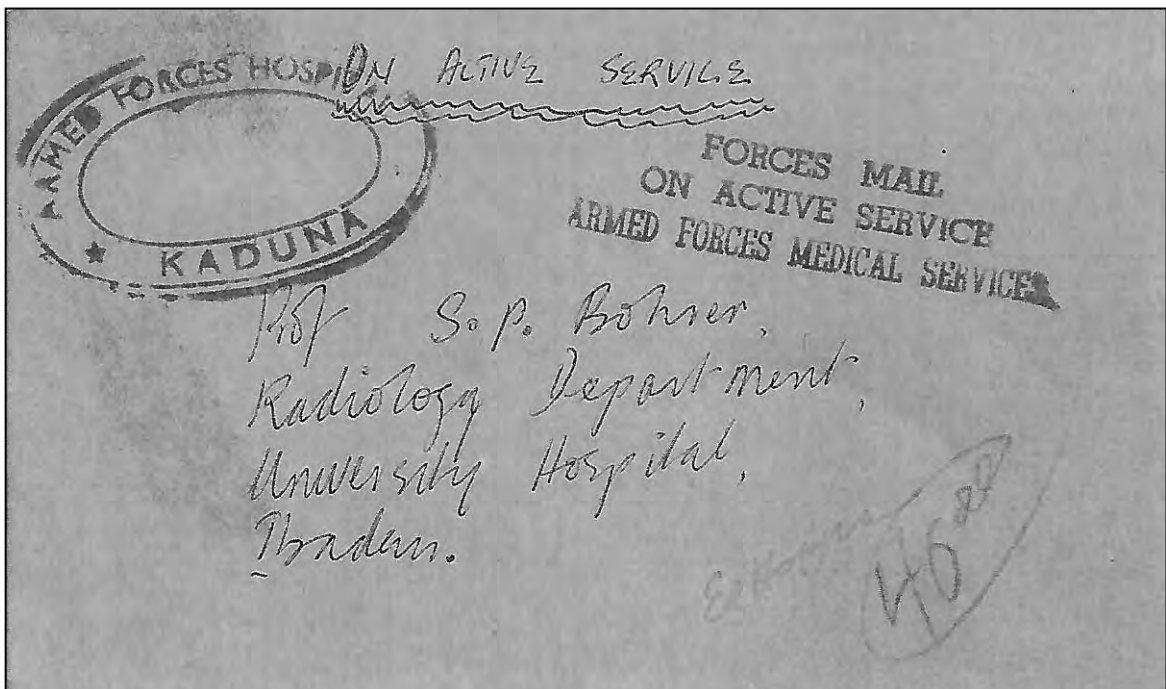 ARMED FORCES HOSPI
★ KADUNA
ON ACTIVE SERVICE
FORCES MAIL
ON ACTIVE SERVICE
ARMED FORCES MEDICAL SERVICES
Prof S. P. Bohrer,
Radiology Department,
University Hospital,
Ibadan.